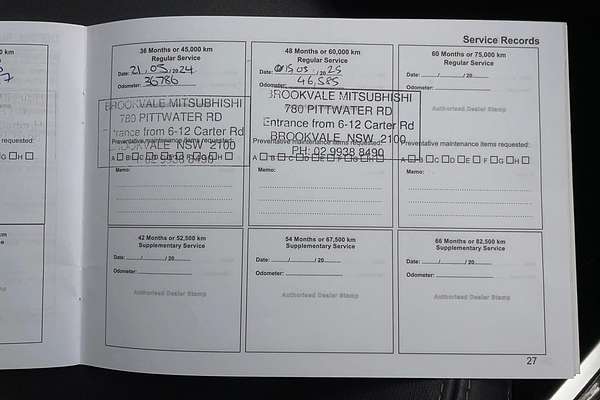 Service Records
36 Months or 45,000 km
Regular Service
Date: 21/05/2024
Odometer: 36786
BROOKVALE MITSUBHISHI
780 PITTWATER RD
trance from 6-12 Carter Rd
Preventative maintenance items requested:
BROOKVALE NSW 2100
A B C D E F G H
: 02 9938 8490
Memo:
48 Months or 60,000 km
Regular Service
Date: 15/03/2025
Odometer: 46,585
BROOKVALE MITSUBHISHI
780 PITTWATER RD
Entrance from 6-12 Carter Rd
BROOKVALE NSW 2100
Preventative maintenance items requested:
PH: 02 9938 8490
A B C D E F G H
Memo:
60 Months or 75,000 km
Regular Service
Date: ....../....../ 20......
Odometer:
Authorised Dealer Stamp
Preventative maintenance items requested:
A B C D E F G H
Memo:
42 Months or 52,500 km
Supplementary Service
Date: ....../....../ 20......
Odometer:
Authorised Dealer Stamp
54 Months or 67,500 km
Supplementary Service
Date: ....../....../ 20......
Odometer:
Authorised Dealer Stamp
66 Months or 82,500 km
Supplementary Service
Date: ....../....../ 20......
Odometer:
Authorised Dealer Stamp
27